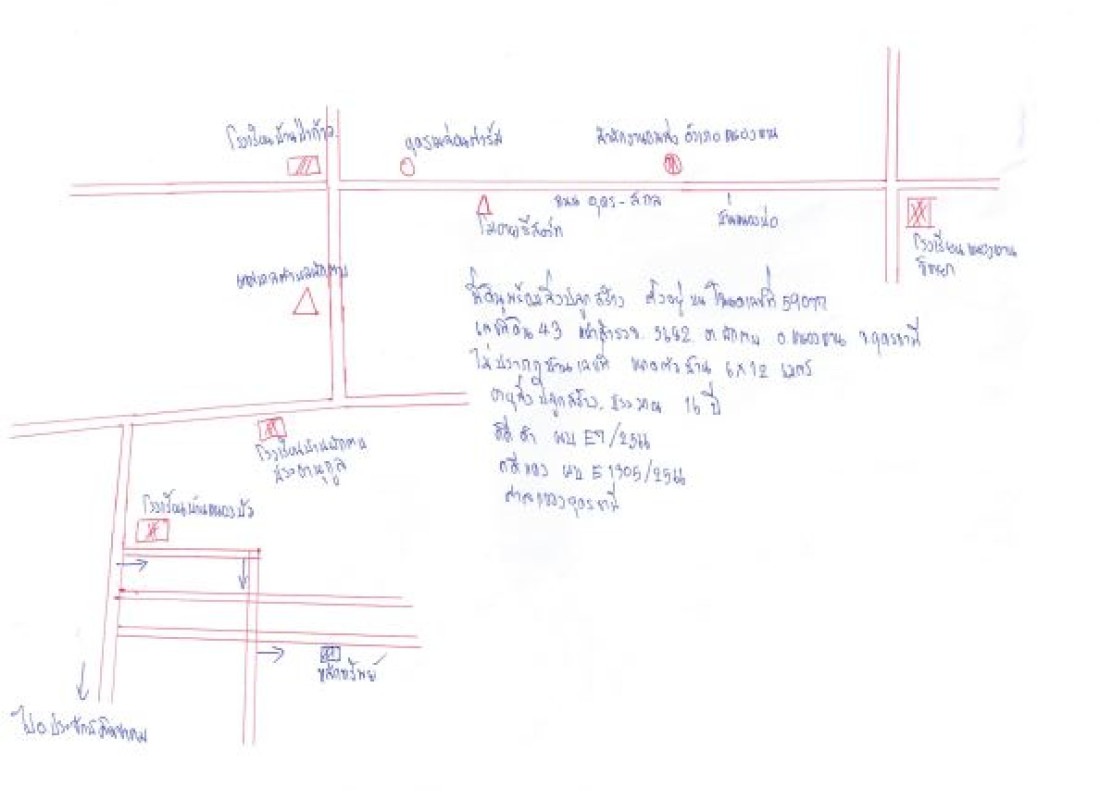 โรงเรียนบ้านป่าก้าว
อุดรแจ่มฟาร์ม
สำนักงานขนส่ง อำเภอหนองหาน
ถนน อุดร - สกล
บ้านหนองบ่อ
โมอายรีสอร์ท
โรงเรียนหนองหาน
วิทยา
เทศบาลตำบลผักตบ
ที่ดินพร้อมสิ่งปลูกสร้าง ตั้งอยู่ บน โฉนดเลขที่ 59077
เลขที่ดิน 43 หน้าสำรวจ 3642 ต.ผักตบ อ.หนองหาน จ.อุดรธานี
ไม่ปรากฏบ้านเลขที่ ขนาดตัวบ้าน 6x12 เมตร
อายุสิ่งปลูกสร้าง ประมาณ 16 ปี
คดีดำ ผบ E7/2566
คดีแดง ผบ E 1305/2566
ศาลแขวงอุดรธานี
โรงเรียนบ้านผักตบ
โรงเรียนบ้านหนองบัว
หลักทรัพย์
ไป อ ประจักษ์ศิลปาคม